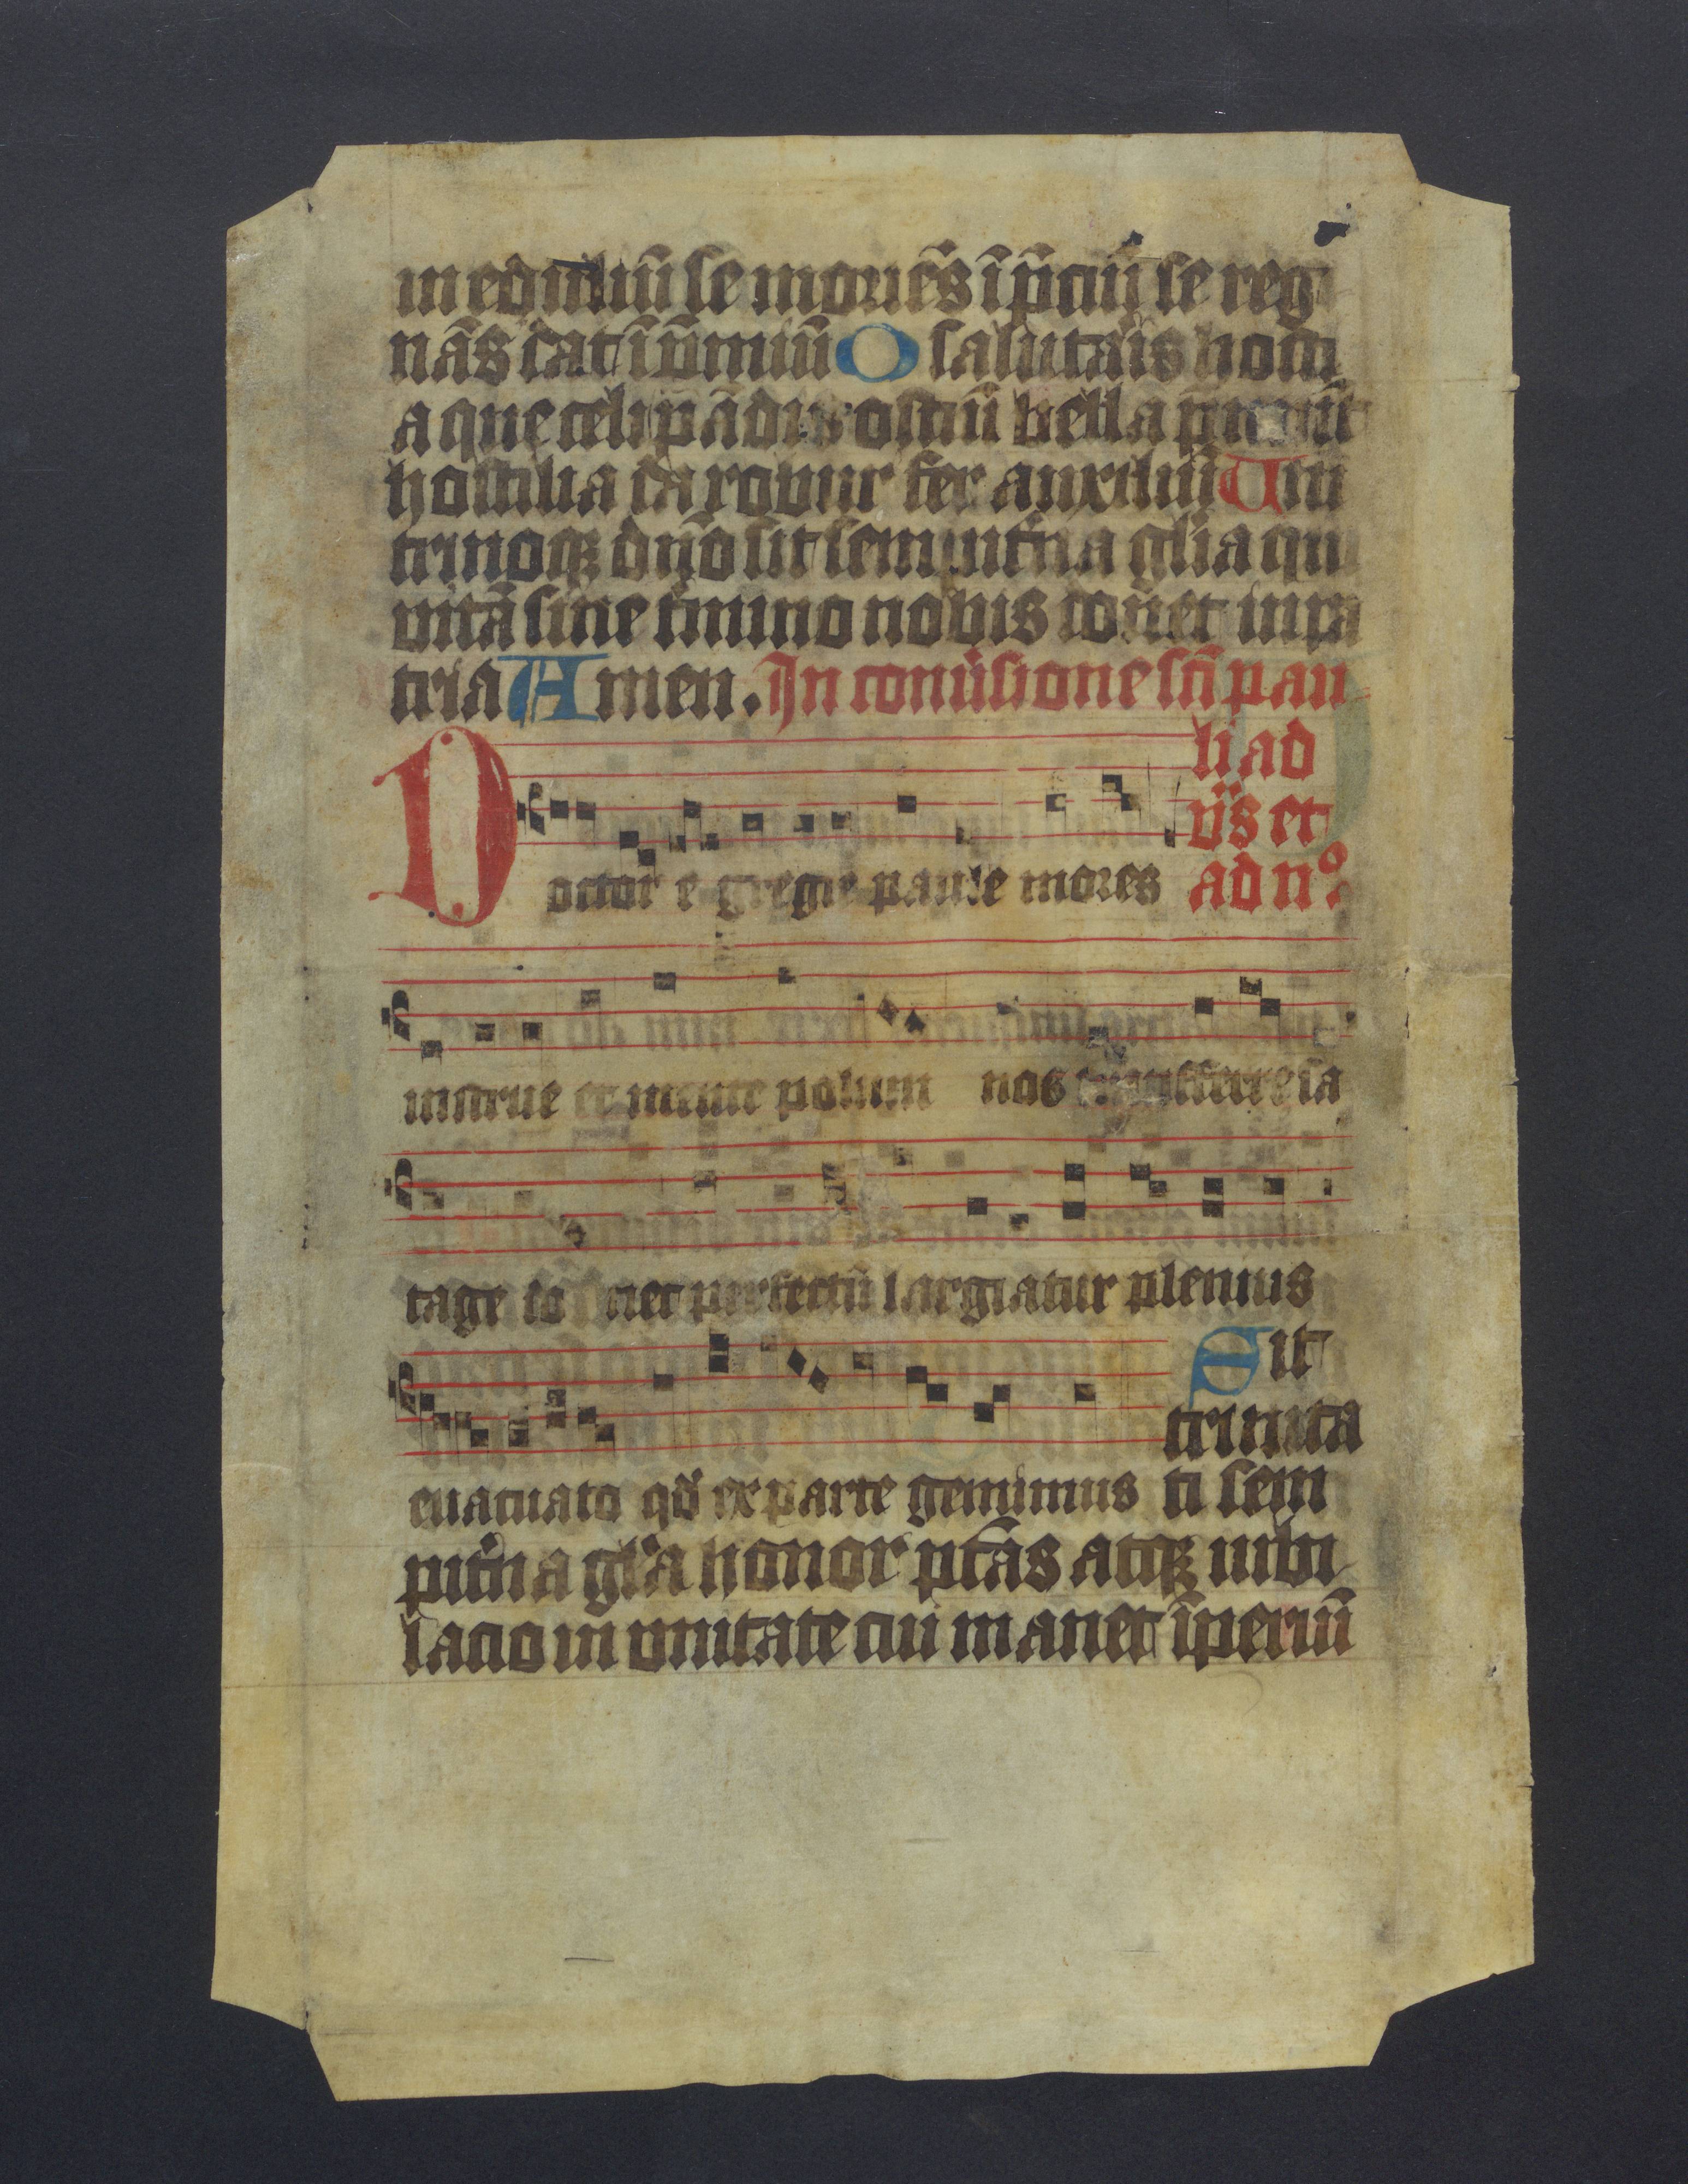 in eduliū se mories ī p̄ciū se reg
nās dat ī p̄miū O salutaīs hostı
a que celi pādis ostiū bella p̄mūt
hostilia da robur fer auxiliū Uni
trinoqꝫ dn̄o sit sempit'na gl'ia qui
vitā sine t'mino nobis donet in pa
tria Amen. In conu'sione sc̄i pau
li ad
vı̄s et
ad nº.
Doctor egregie paule mores
instrue et mente polum nos transferre sa
tage do nec perfectū largiatur plenius
Sit
trinita
euacuato qd̄ ex parte gerimimus ti sem
pit'na gl'a honor ptās atqꝫ iubi
lacio in unitate cui manet īperiū